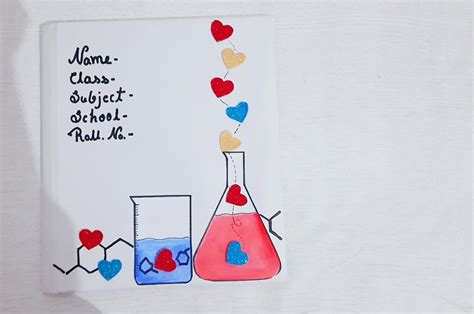 Name-
Class-
Subject-
School-
Roll. No.-